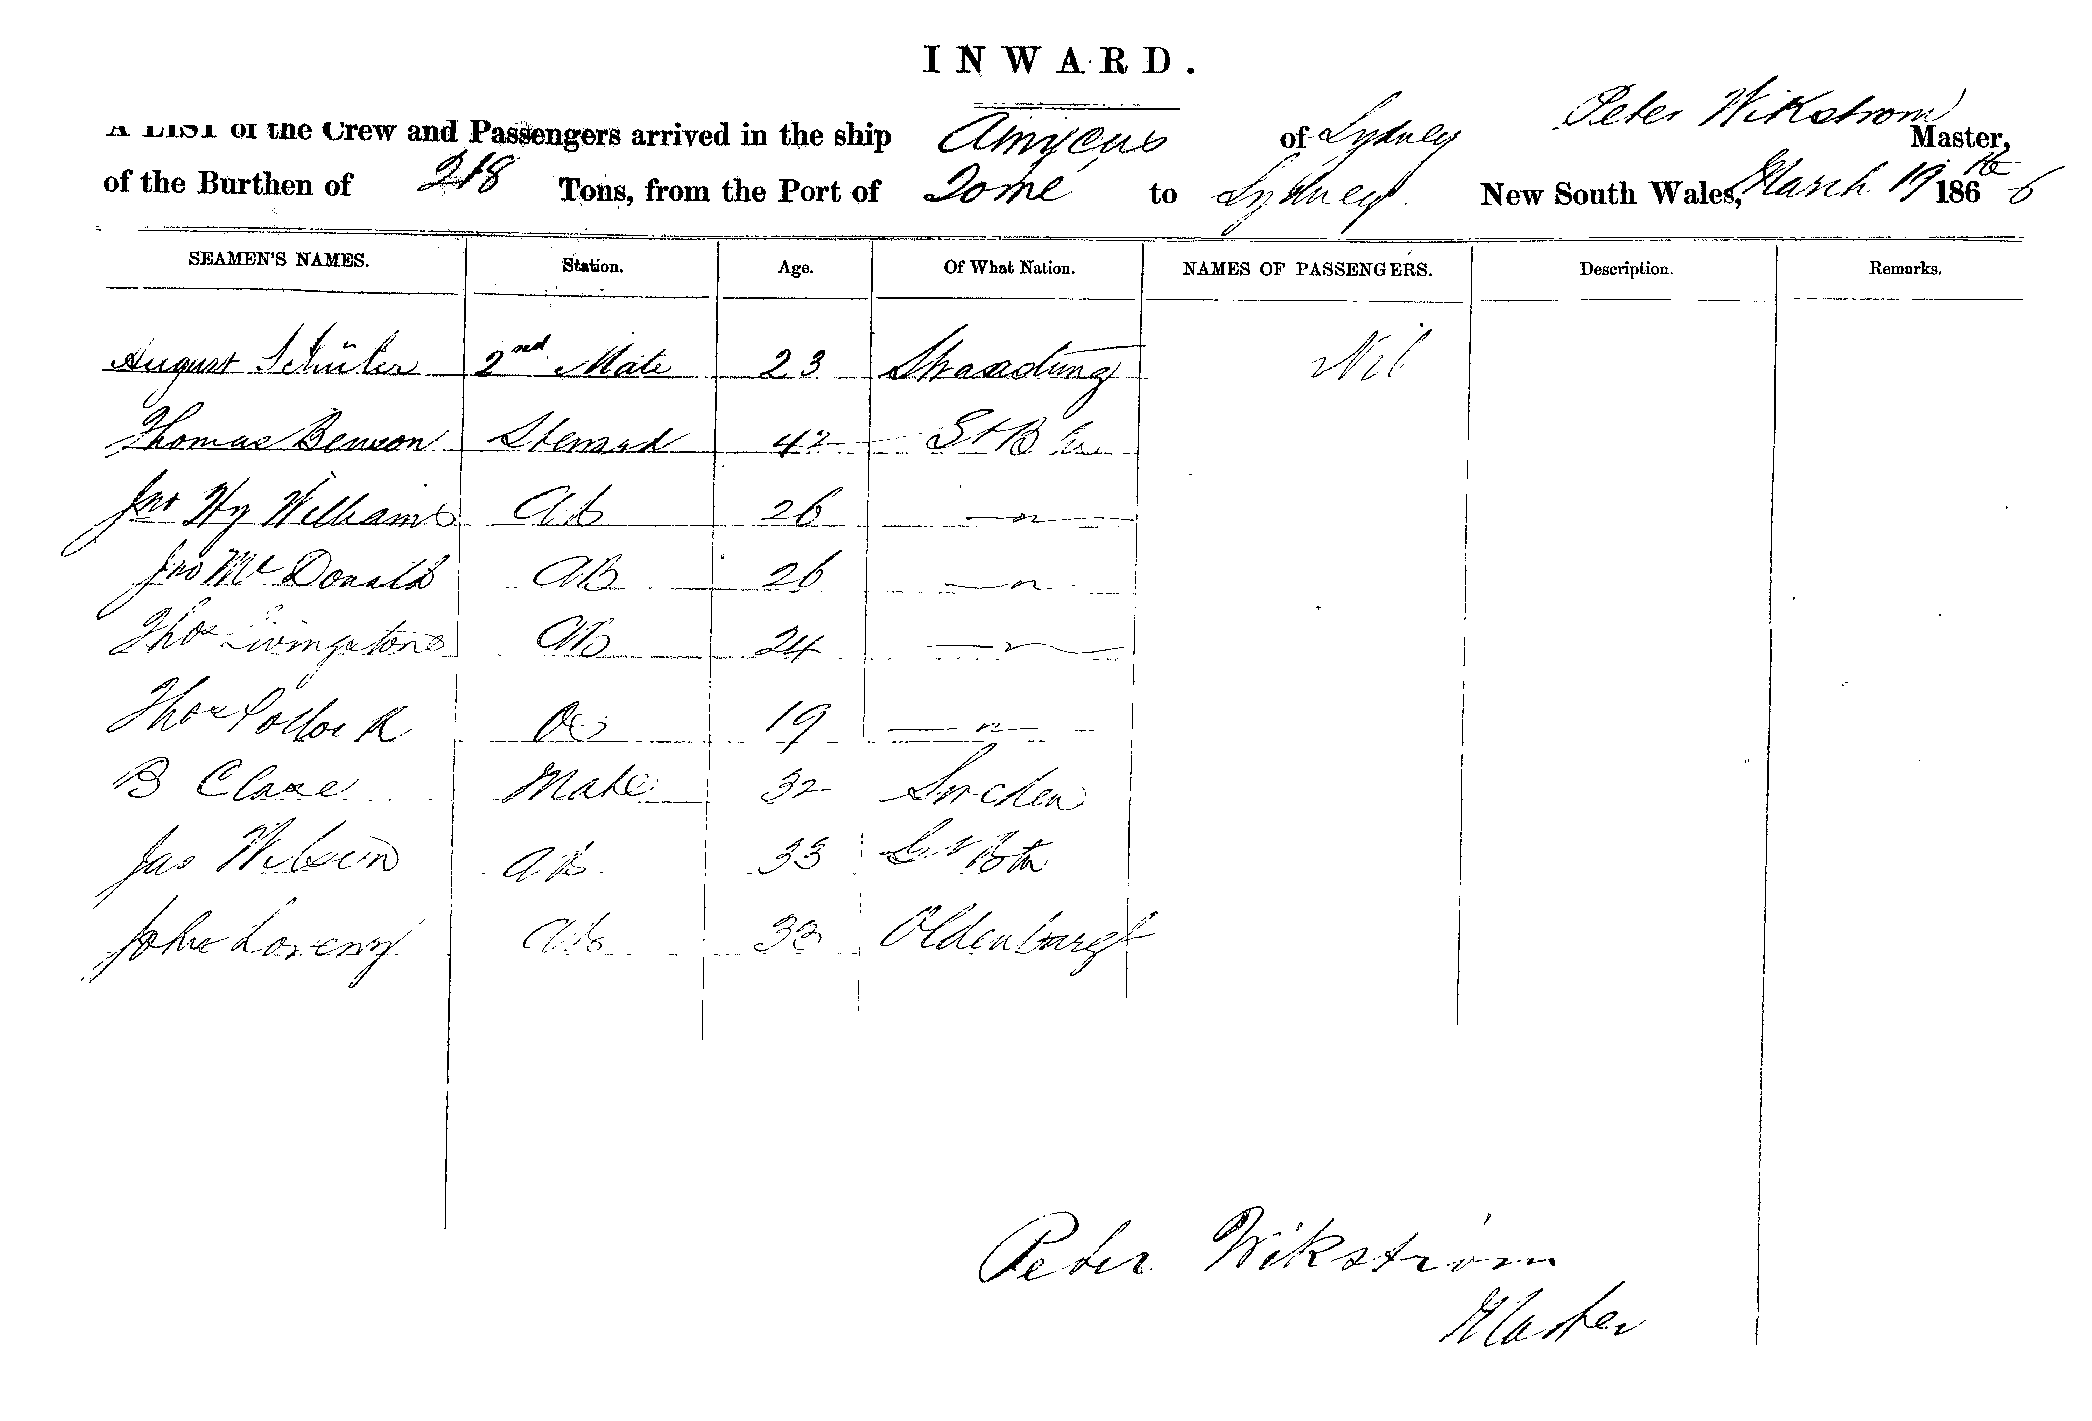 INWARD.
A LIST of the Crew and Passengers arrived in the ship Amycus of Sydney Peter Wikstrom Master,
of the Burthen of 218 Tons, from the Port of Tomé to Sydney. New South Wales, March 19th 1866
SEAMEN'S NAMES. Station. Age. Of What Nation. NAMES OF PASSENGERS. Description. Remarks.
August Schüler 2nd Mate 23 Nil
Thomas Benson Steward 42
Jno Hy Williams AB 26 — " —
Jno Mc Donald AB 26 — " —
Thos Livingstone AB 24 — " —
Thos Pollock OS 19 — " —
B Clase Mate 32
Jas Wilson AB 33
John Lorenz AB 33 Oldenburg
Peter Wikström
Master